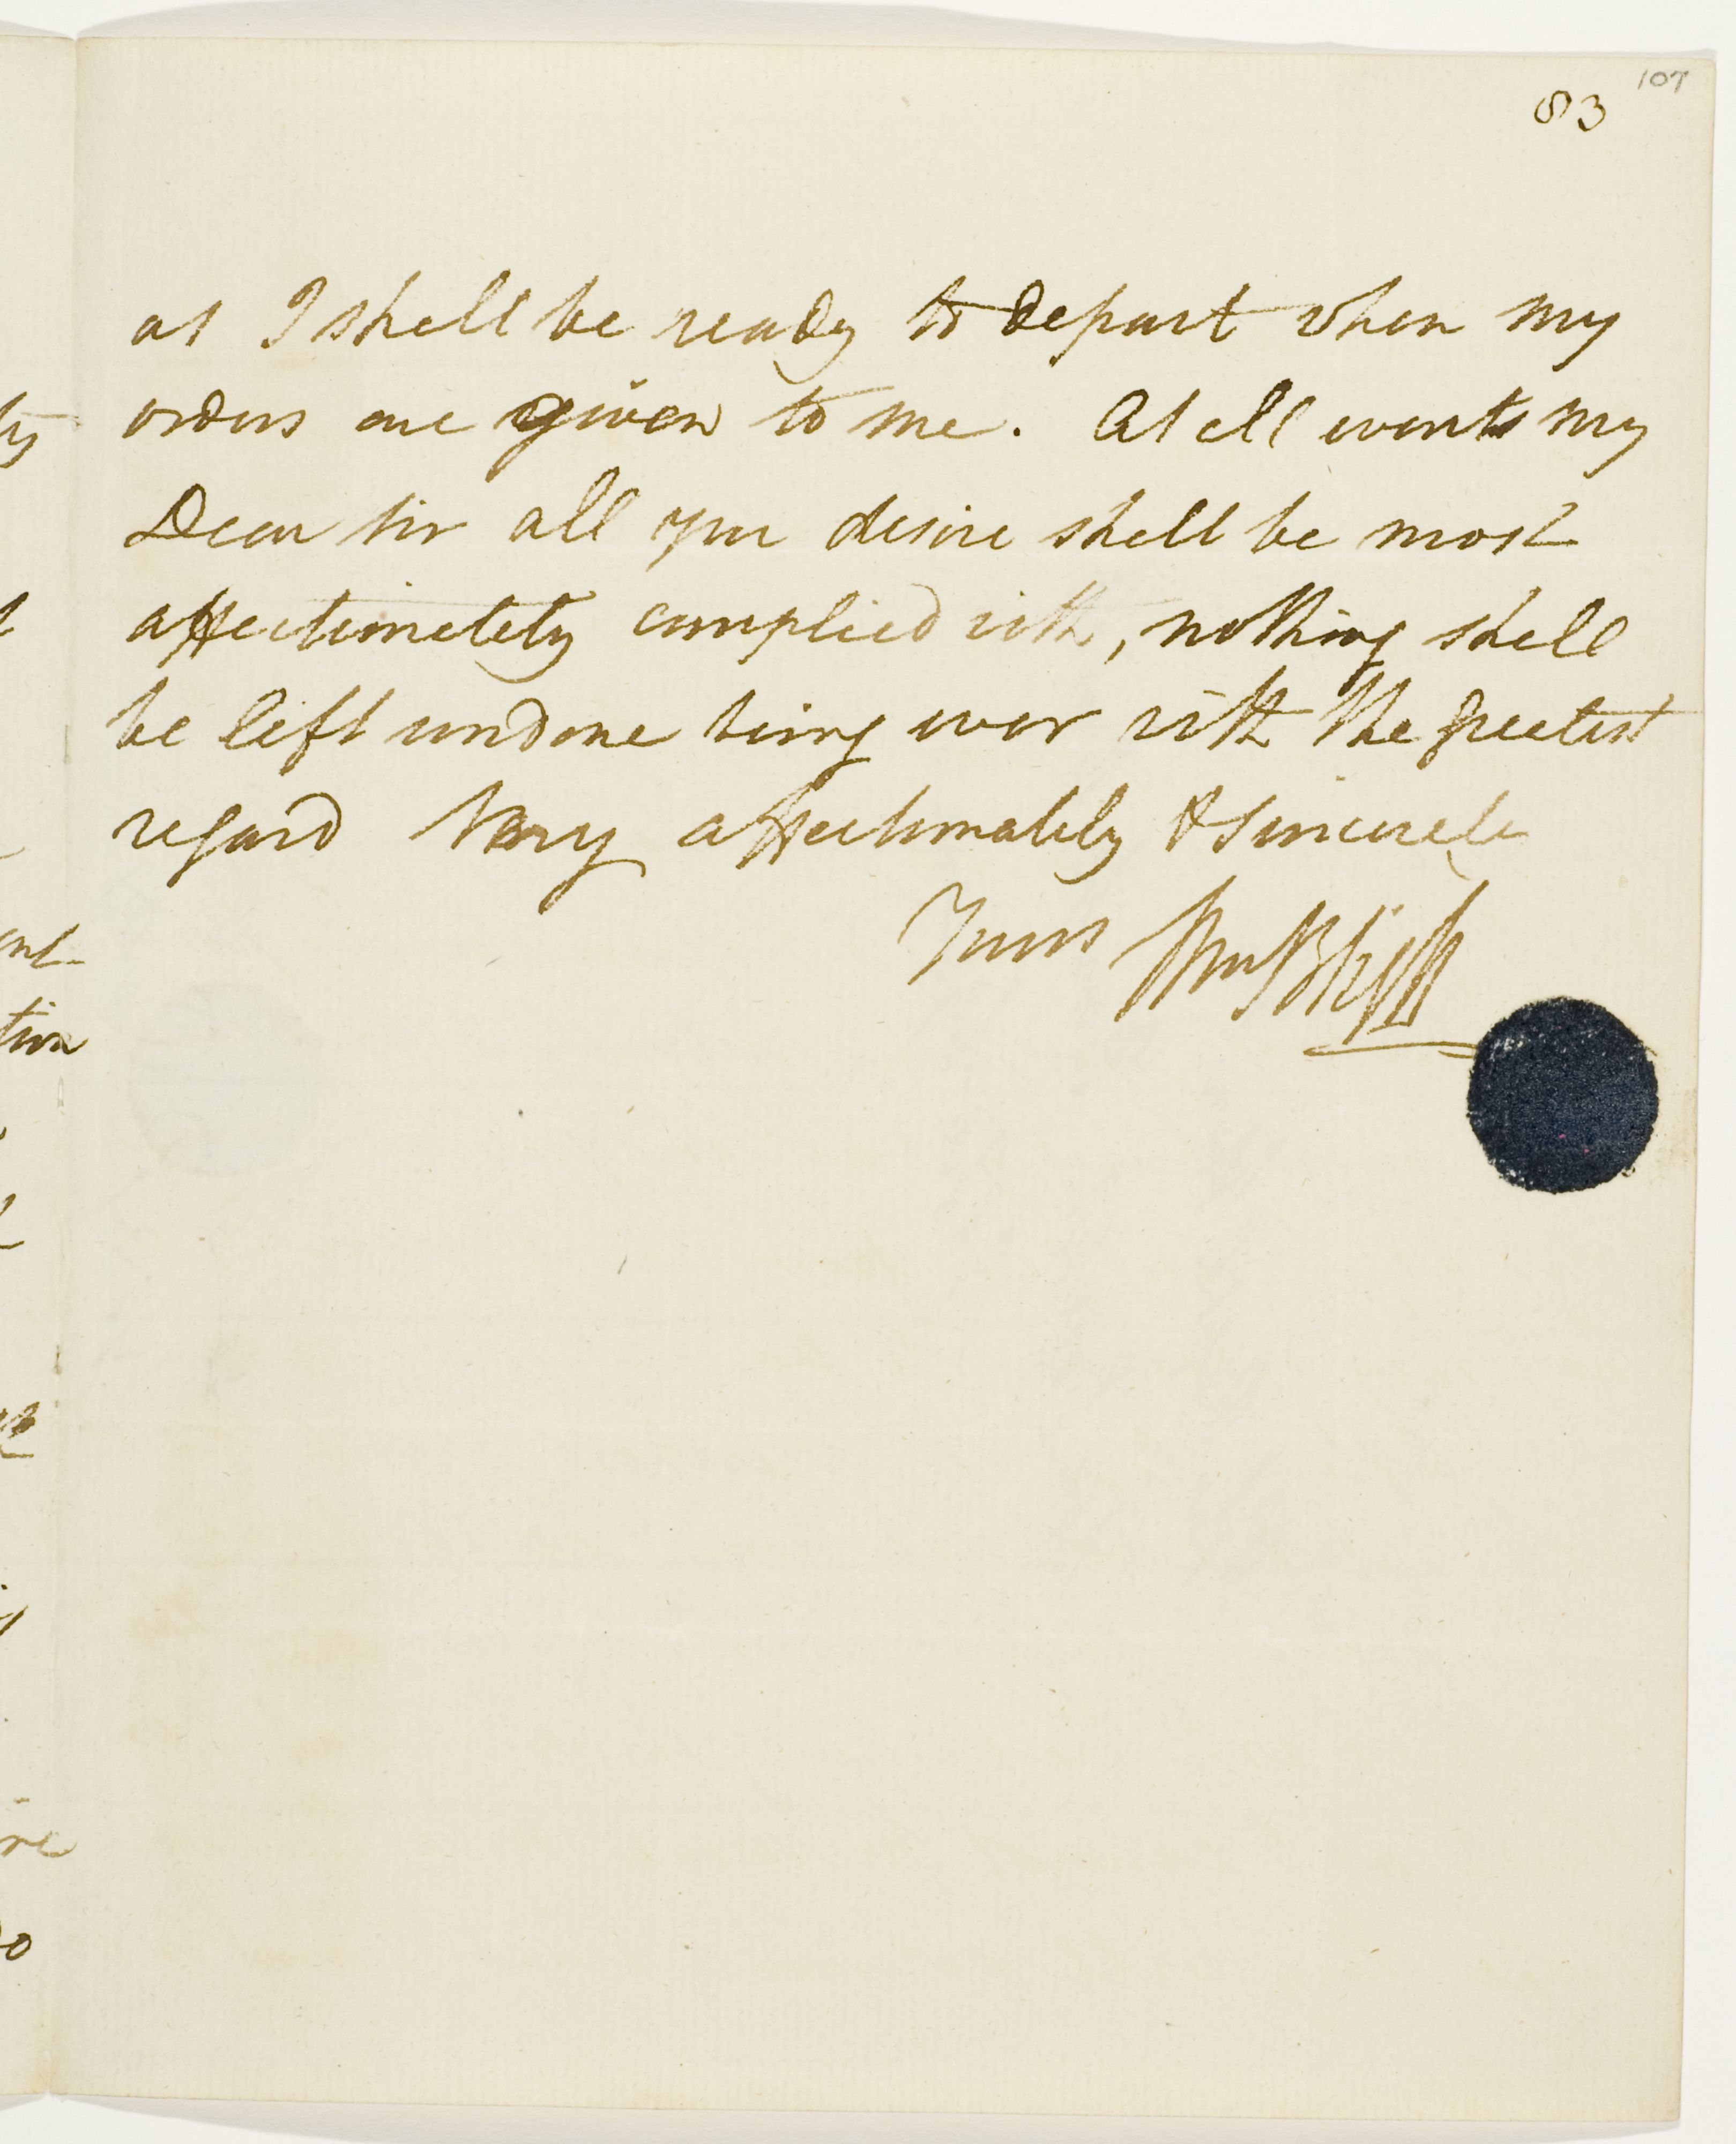 107
83
as I shall be ready to depart when my
orders are given to me. At all events my
Dear Sir all your desire shall be most
affectionately complied with, nothing shall
be left undone being ever with the greatest
regard Very affectionately & sincerely
Yours Wm Bligh